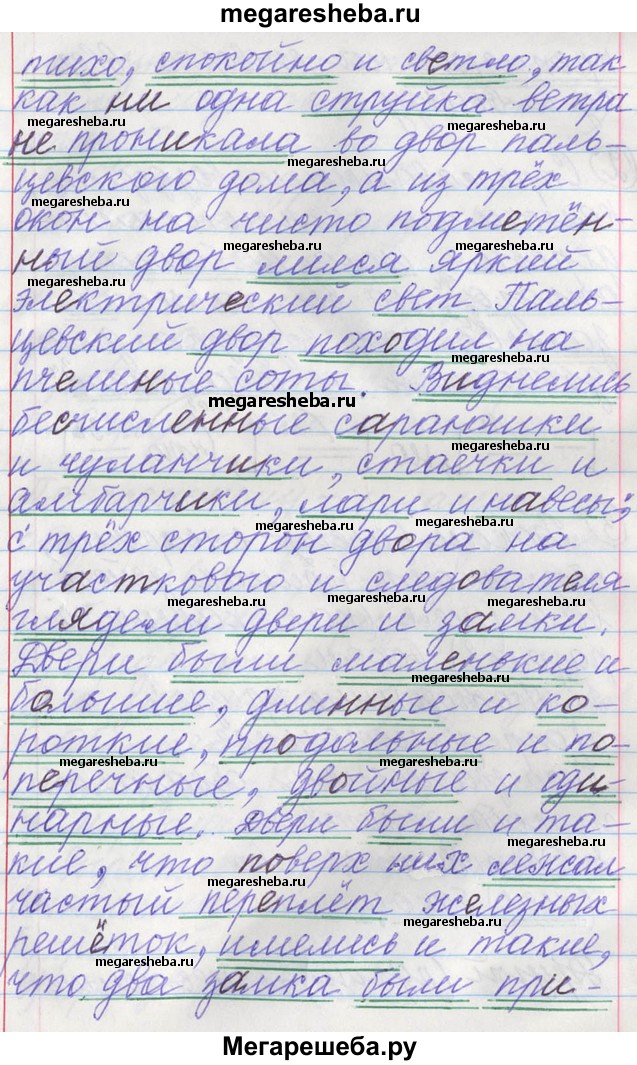 megaresheba.ru
тихо, спокойно и светло, так
как ни одна струйка ветра
megaresheba.ru megaresheba.ru
не проникала во двор паль-
megaresheba.ru
цевского дома, а из трёх
megaresheba.ru
окон на чисто подметён-
megaresheba.ru megaresheba.ru
ный двор лился яркий
электрический свет. Паль-
megaresheba.ru
цевский двор походил на
megaresheba.ru
пчелиные соты. Виднелись
megaresheba.ru
бесчисленные сараюшки
megaresheba.ru
и чуланчики, стаечки и
амбарчики, лари и навесы;
megaresheba.ru megaresheba.ru
с трёх сторон двора на
участкового и следователя
megaresheba.ru megaresheba.ru
глядели двери и замки.
Двери были маленькие и
megaresheba.ru
большие, длинные и ко-
роткие, продольные и по-
megaresheba.ru megaresheba.ru
перечные, двойные и оди-
нарные. Двери были и та-
megaresheba.ru
кие, что поверх них лежал
megaresheba.ru
частый переплёт железных
megaresheba.ru
решёток, имелись и такие,
megaresheba.ru
что два замка были при-
megaresheba.ru
Мегарешеба.ру